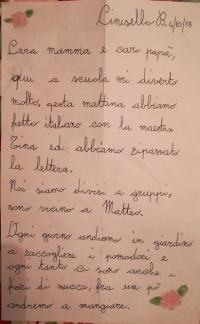 Cinisello B. 4/10/13
Cara mamma e caro papà,
qui a scuola mi diverto
molto, questa mattina abbiamo
fatto italiano con la maestra
Tina ed abbiamo ripassato
la lettera.
Noi siamo divisi a gruppi,
sono vicino a Matteo.
Ogni giorno andiamo in giardino
a raccogliere i pomodori e
ogni tanto ci sono anche i
fiori di zucca, fra un pò
andremo a mangiare.